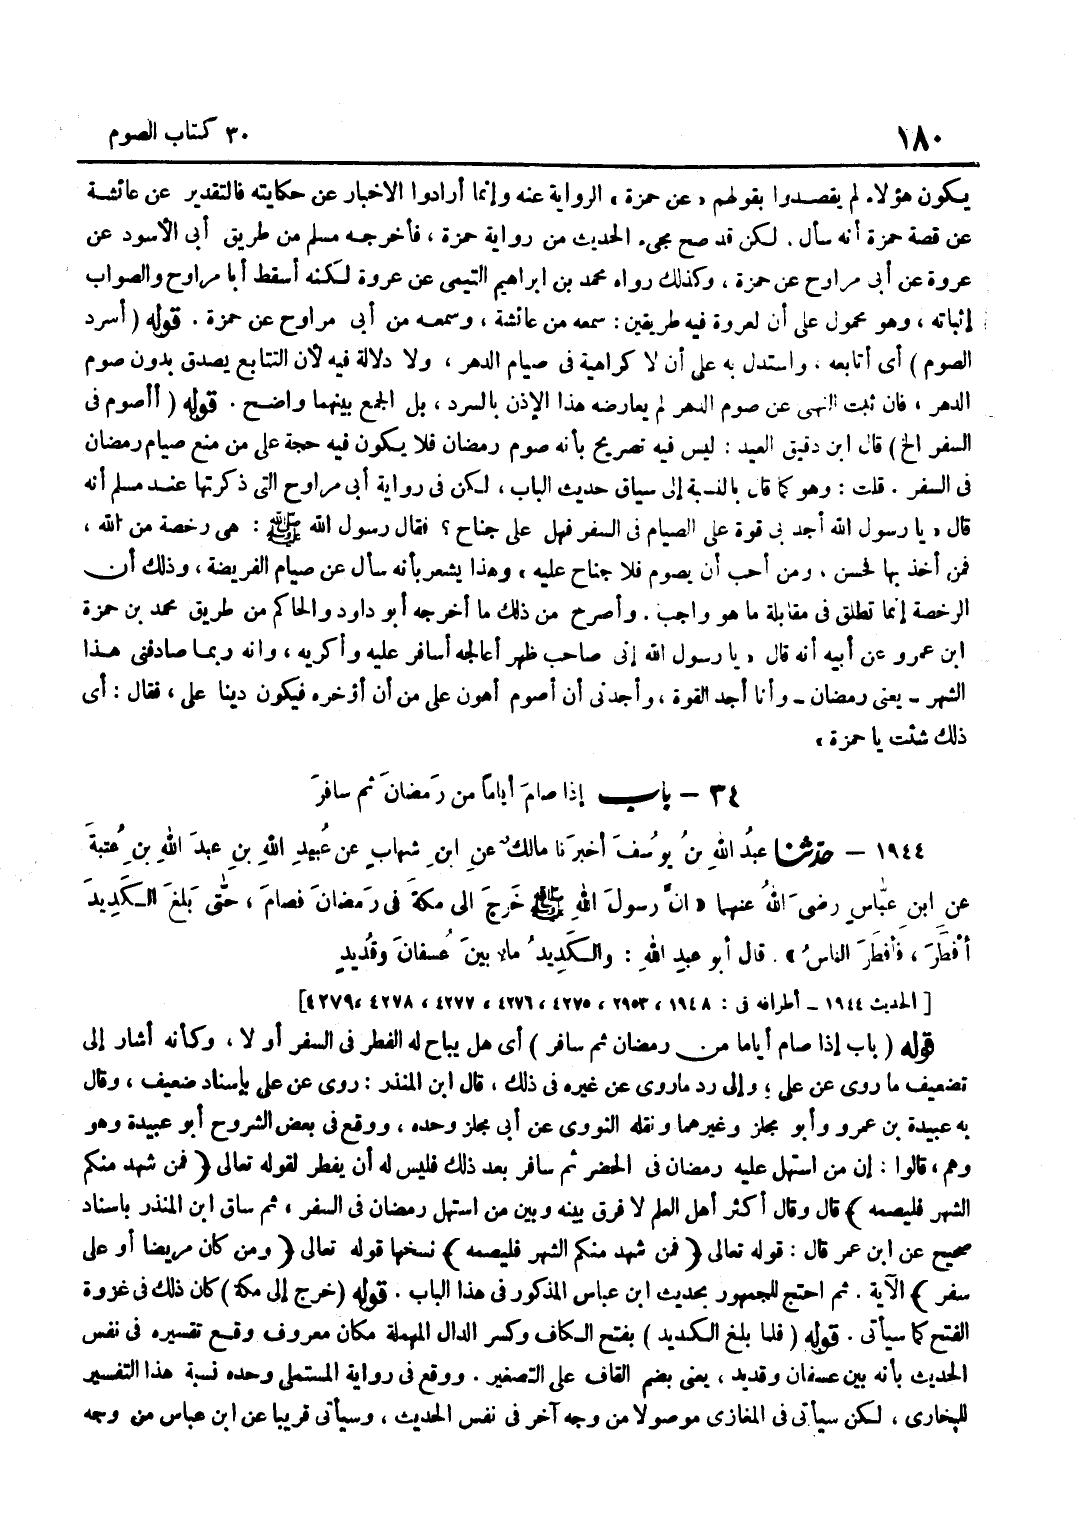 ١٨٠
٣٠ كتاب الصوم
يكون هؤلاء لم يقصدوا بقولهم « عن حمزة » الرواية عنه وإنما أرادوا الاخبار عن حكايته فالتقدير عن عائشة
عن قصة حمزة أنه سأل . لكن قد صح مجىء الحديث من رواية حمزة ، فأخرجه مسلم من طريق أبى الأسود عن
عروة عن أبى مراوح عن حمزة ، وكذلك رواه محمد بن ابراهيم التيمى عن عروة لكنه أسقط أبا مراوح والصواب
إثباته ، وهو محمول على أن لعروة فيه طريقين : سمعه من عائشة ، وسمعه من أبى مراوح عن حمزة . قوله ( أسرد
الصوم ) أى أتابعه ، واستدل به على أن لا كراهية فى صيام الدهر ، ولا دلالة فيه لأن التتابع يصدق بدون صوم
الدهر ، فان ثبت النهى عن صوم الدهر لم يعارضه هذا الإذن بالسرد ، بل الجمع بينهما واضح . قوله ( أأصوم فى
السفر الخ ) قال ابن دقيق العيد : ليس فيه تصريح بأنه صوم رمضان فلا يكون فيه حجة على من منع صيام رمضان
فى السفر . قلت : وهو كما قال بالنسبة إلى سياق حديث الباب ، لكن فى رواية أبى مراوح التى ذكرتها عند مسلم أنه
قال « يا رسول الله أجد بى قوة على الصيام فى السفر فهل على جناح ؟ فقال رسول الله ﷺ : هى رخصة من الله ،
فمن أخذ بها فحسن ، ومن أحب أن يصوم فلا جناح عليه » وهذا يشعر بأنه سأل عن صيام الفريضة ، وذلك أن
الرخصة إنما تطلق فى مقابلة ما هو واجب . وأصرح من ذلك ما أخرجه أبو داود والحاكم من طريق محمد بن حمزة
ابن عمرو عن أبيه أنه قال « يا رسول الله إنى صاحب ظهر أعالجه أسافر عليه وأكريه ، وانه ربما صادفنى هذا
الشهر ـ يعنى رمضان ـ وأنا أجد القوة ، وأجدنى أن أصوم أهون على من أن أؤخره فيكون دينا على ، فقال : أى
ذلك شئت يا حمزة »
٣٤ – باب إذا صامَ أياماً من رَمضانَ ثم سافرَ
١٩٤٤ – حدثنا عبدُ اللهِ بنُ يوسُفَ أخبرَنا مالكٌ عنِ ابنِ شهابٍ عن عُبيدِ اللهِ بنِ عبدِ اللهِ بنِ عُتبةَ
عنِ ابنِ عبّاسٍ رضىَ اللهُ عنهما « انَّ رسولَ اللهِ ﷺ خَرجَ الى مكةَ فى رَمضانَ فصامَ ، حتّى بَلغَ الكَديدَ
أفْطَرَ ، فأفطَرَ الناسُ » . قال أبو عبدِ اللهِ : والكَدِيدُ ماء بينَ عُسفانَ وقُديدٍ
[ الحديث ١٩٤٤ ـ أطرافه فى : ١٩٤٨ ، ٢٩٥٣ ، ٤٢٧٥ ، ٤٢٧٦ ، ٤٢٧٧ ، ٤٢٧٨ ، ٤٢٧٩ ]
قوله ( باب إذا صام أياما من رمضان ثم سافر ) أى هل يباح له الفطر فى السفر أو لا ، وكأنه أشار إلى
تضعيف ما روى عن على ، وإلى رد ماروى عن غيره فى ذلك ، قال ابن المنذر : روى عن على بإسناد ضعيف ، وقال
به عبيدة بن عمرو وأبو مجلز وغيرهما ونقله النووى عن أبى مجلز وحده ، ووقع فى بعض الشروح أبو عبيدة وهو
وهم ، قالوا : إن من استهل عليه رمضان فى الحضر ثم سافر بعد ذلك فليس له أن يفطر لقوله تعالى ﴿ فمن شهد منكم
الشهر فليصمه ﴾ قال وقال أكثر أهل العلم لا فرق بينه وبين من استهل رمضان فى السفر ، ثم ساق ابن المنذر باسناد
صحيح عن ابن عمر قال : قوله تعالى ﴿ فمن شهد منكم الشهر فليصمه ﴾ نسخها قوله تعالى ﴿ ومن كان مريضا أو على
سفر ﴾ الآية . ثم احتج للجمهور بحديث ابن عباس المذكور فى هذا الباب . قوله (خرج إلى مكة) كان ذلك فى غزوة
الفتح كما سيأتى . قوله ( فلما بلغ الكديد ) بفتح الكاف وكسر الدال المهملة مكان معروف وقع تفسيره فى نفس
الحديث بأنه بين عسفان وقديد ، يعنى بضم القاف على التصغير . ووقع فى رواية المستملى وحده نسبة هذا التفسير
للبخارى ، لكن سيأتى فى المغازى موصولا من وجه آخر فى نفس الحديث ، وسيأتى قريبا عن ابن عباس من وجه